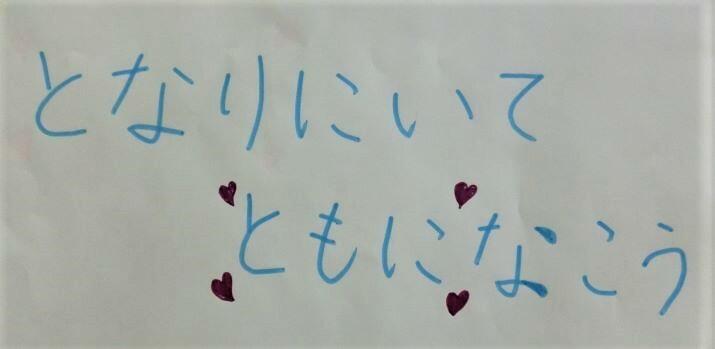 となりにいて
ともになこう